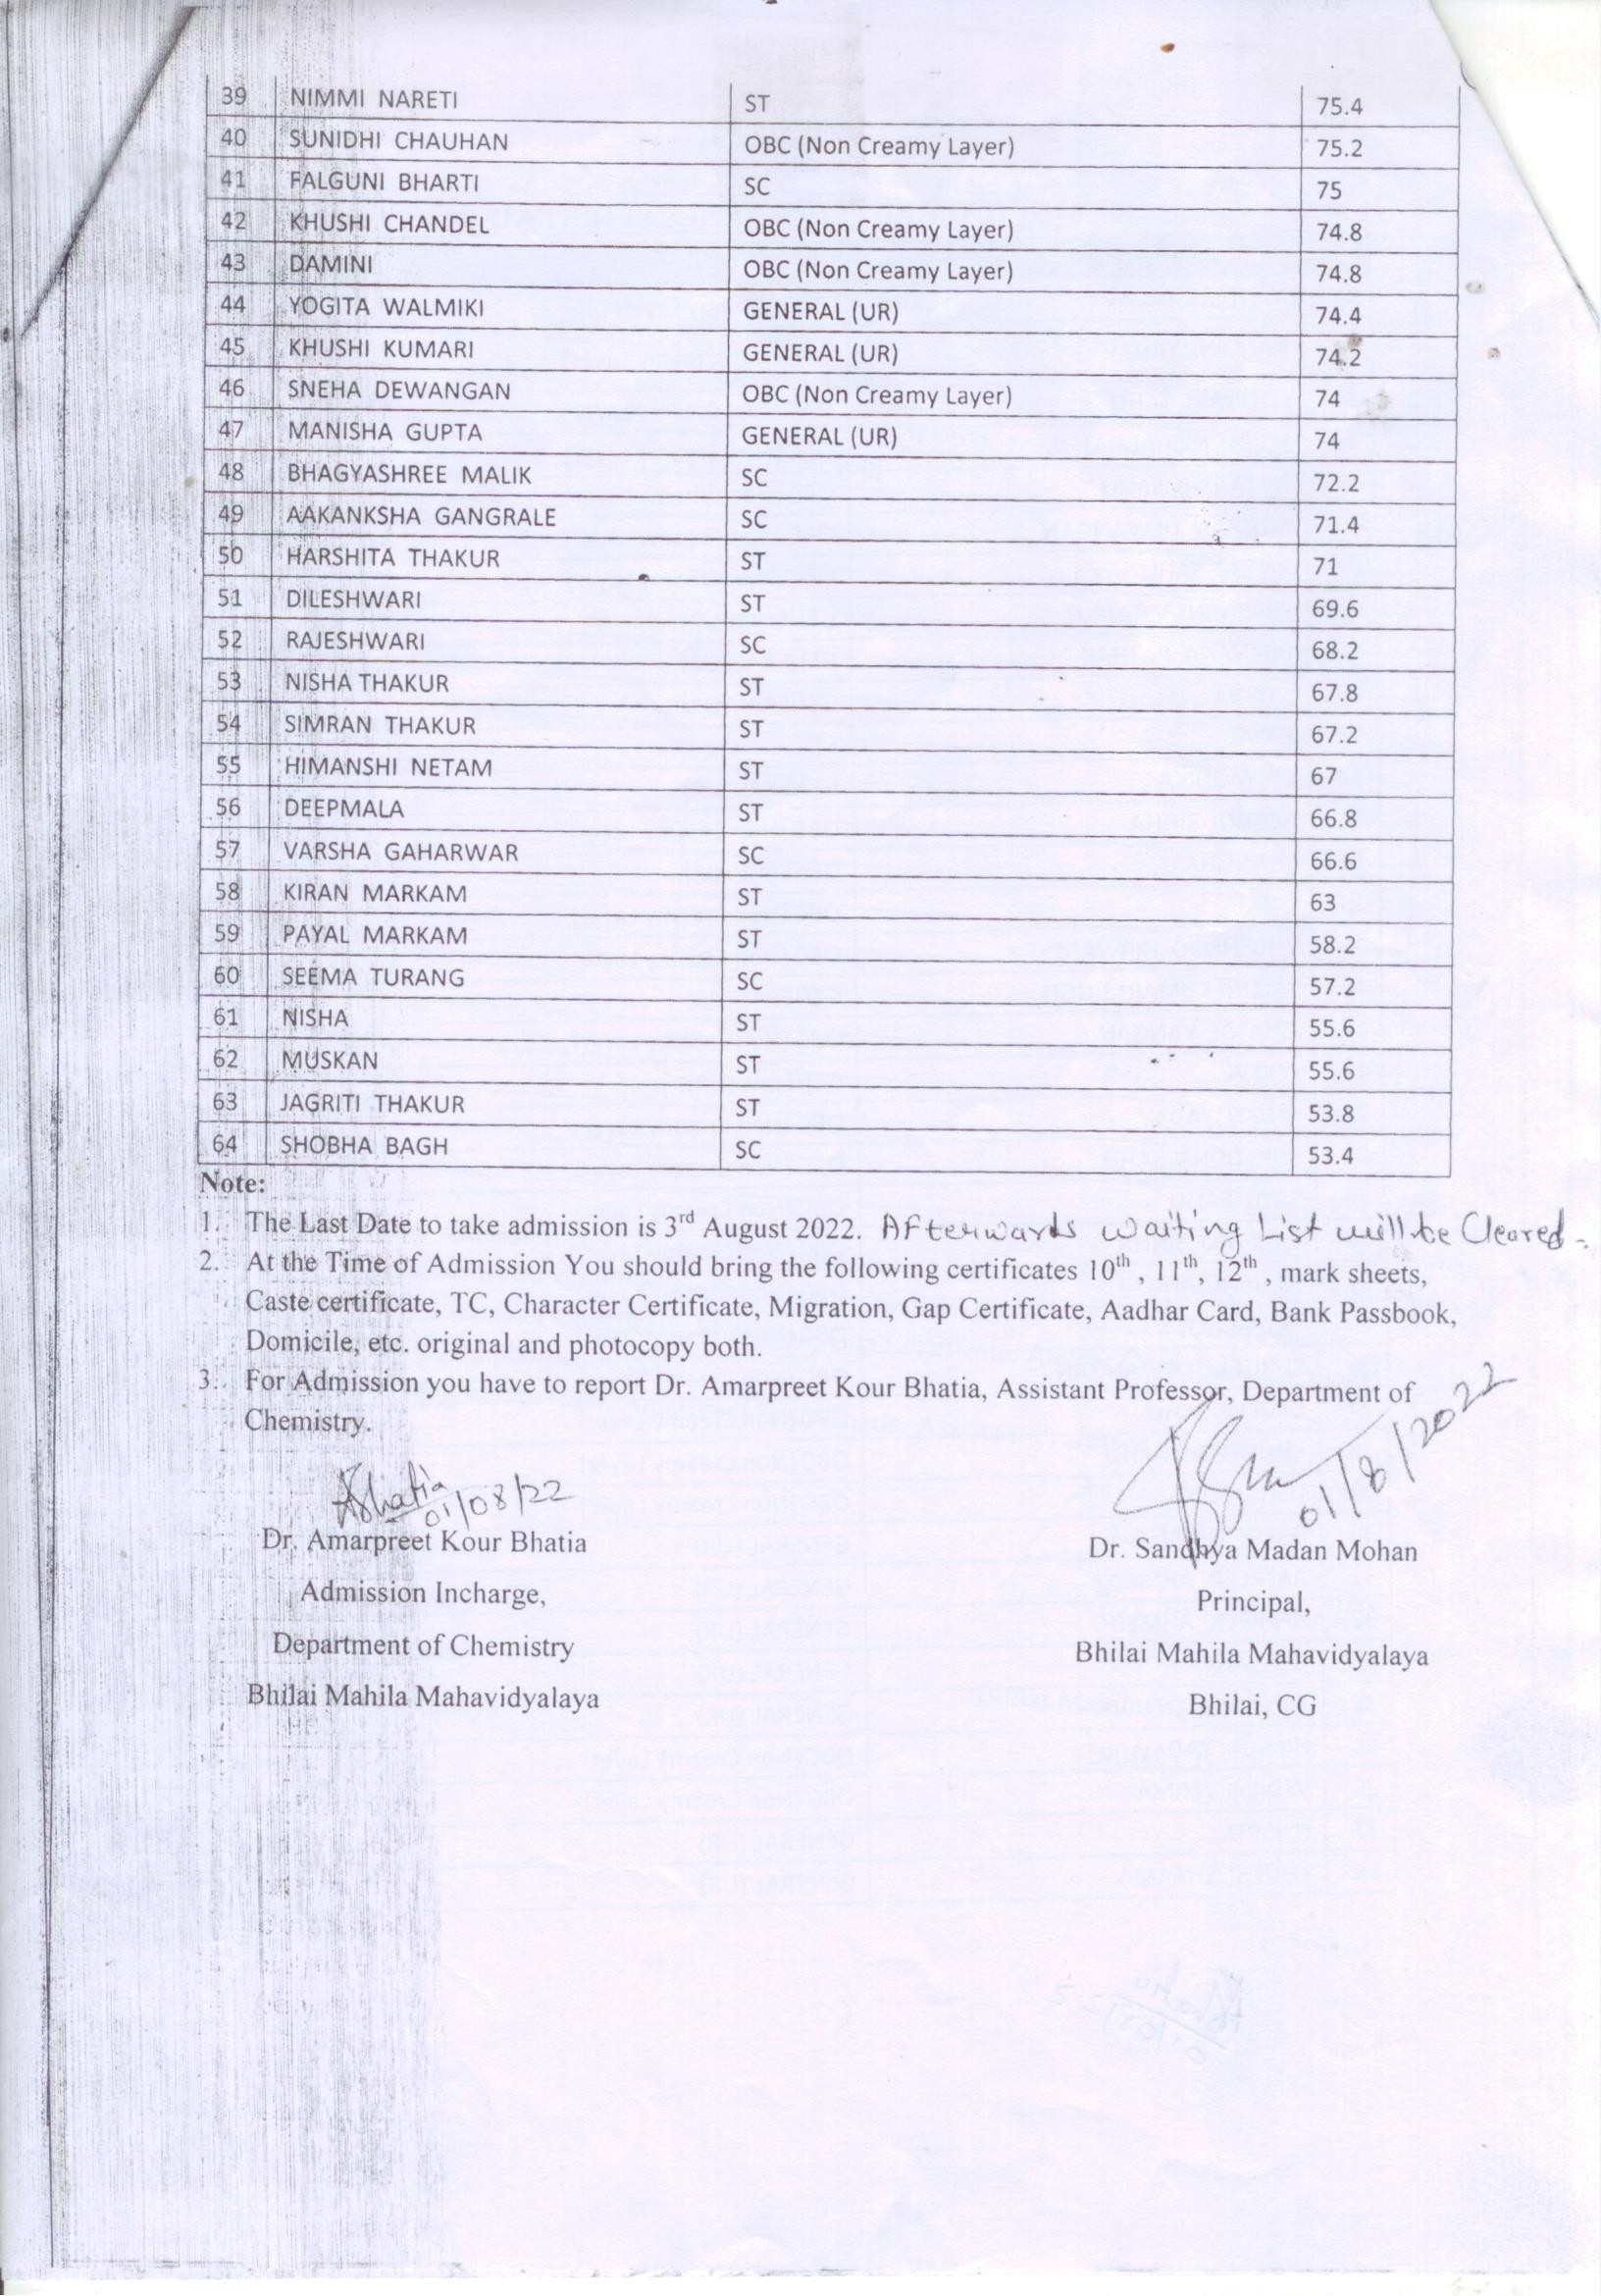 39 NIMMI NARETI ST 75.4
40 SUNIDHI CHAUHAN OBC (Non Creamy Layer) 75.2
41 FALGUNI BHARTI SC 75
42 KHUSHI CHANDEL OBC (Non Creamy Layer) 74.8
43 DAMINI OBC (Non Creamy Layer) 74.8
44 YOGITA WALMIKI GENERAL (UR) 74.4
45 KHUSHI KUMARI GENERAL (UR) 74.2
46 SNEHA DEWANGAN OBC (Non Creamy Layer) 74
47 MANISHA GUPTA GENERAL (UR) 74
48 BHAGYASHREE MALIK SC 72.2
49 AAKANKSHA GANGRALE SC 71.4
50 HARSHITA THAKUR ST 71
51 DILESHWARI ST 69.6
52 RAJESHWARI SC 68.2
53 NISHA THAKUR ST 67.8
54 SIMRAN THAKUR ST 67.2
55 HIMANSHI NETAM ST 67
56 DEEPMALA ST 66.8
57 VARSHA GAHARWAR SC 66.6
58 KIRAN MARKAM ST 63
59 PAYAL MARKAM ST 58.2
60 SEEMA TURANG SC 57.2
61 NISHA ST 55.6
62 MUSKAN ST 55.6
63 JAGRITI THAKUR ST 53.8
64 SHOBHA BAGH SC 53.4
Note:
1. The Last Date to take admission is 3rd August 2022. Afterwards waiting List will be Cleared.
2. At the Time of Admission You should bring the following certificates 10th , 11th, 12th , mark sheets,
Caste certificate, TC, Character Certificate, Migration, Gap Certificate, Aadhar Card, Bank Passbook,
Domicile, etc. original and photocopy both.
3. For Admission you have to report Dr. Amarpreet Kour Bhatia, Assistant Professor, Department of
Chemistry.
ABhatia 01/08/22
01/8/2022
Dr. Amarpreet Kour Bhatia
Admission Incharge,
Department of Chemistry
Bhilai Mahila Mahavidyalaya
Dr. Sandhya Madan Mohan
Principal,
Bhilai Mahila Mahavidyalaya
Bhilai, CG